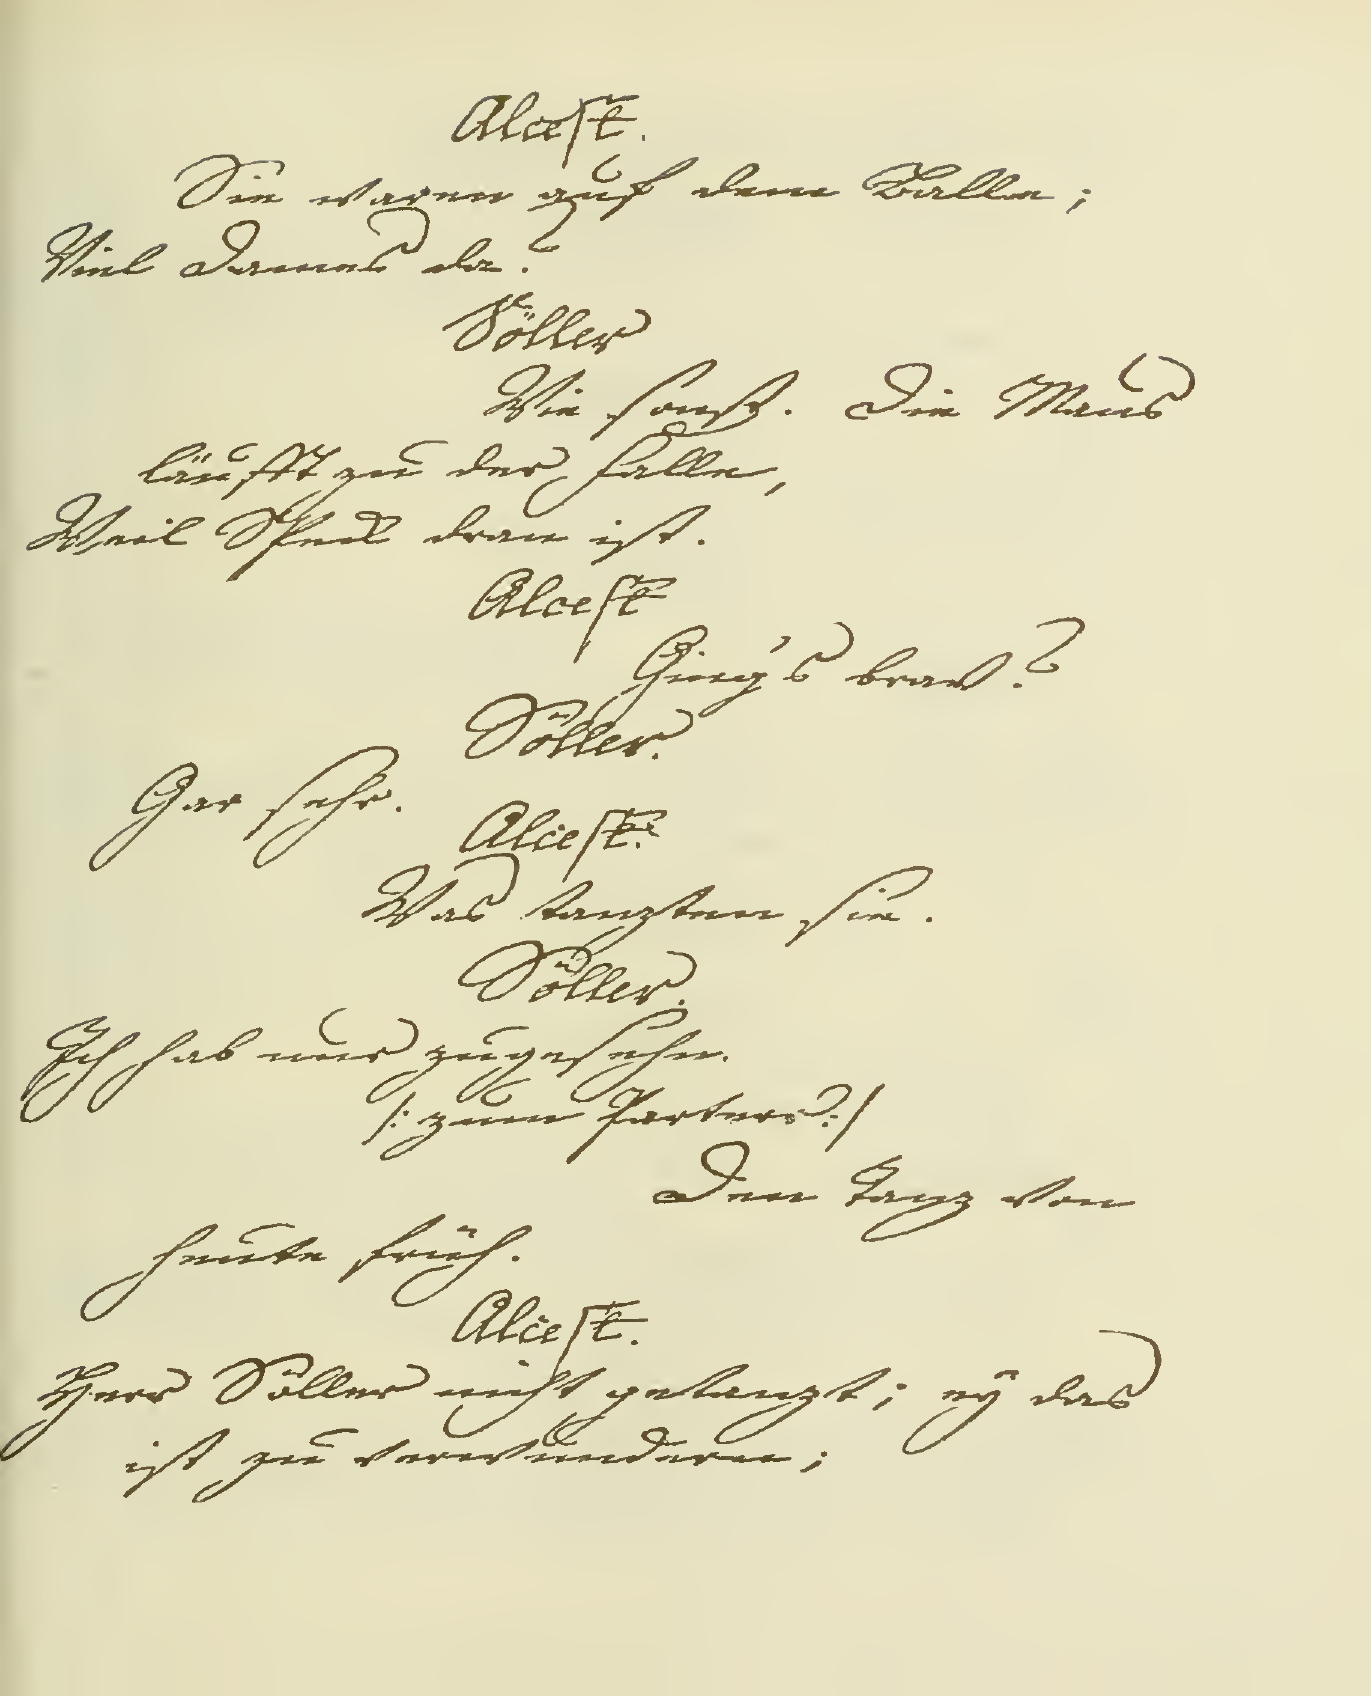 Alcest.
Sie waren auf dem Balle;
Viel Dames da?
Söller
Wie sonst. Die Maus
läufft zu der Falle,
Weil Speck dran ist.
Alcest
Ging's brav?
Söller.
Gar sehr.
Alcest.
Was tanzten sie.
Söller.
Ich hab nur zugesehn.
/: zum Parterr :/
Den Tanz von
heute früh.
Alcest.
Herr Söller nicht getanzt; ey das
ist zu verwundern;